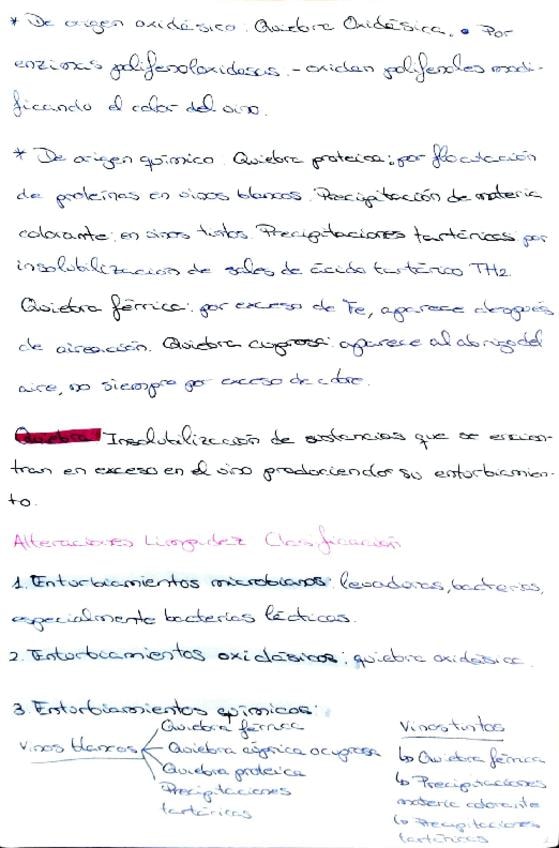 * De origen oxidásico: Quiebra Oxidásica. • Por
enzimas polifenoloxidasas. - oxidan polifenoles modi-
ficando el color del vino.
* De origen químico. Quiebra proteica: por floculación
de proteínas en vinos blancos. Precipitación de materia
colorante: en vinos tintos. Precipitaciones tartáricas por
insolubilización de sales de ácido tartárico TH2.
Quiebra férrica: por exceso de Fe, aparece después
de aireación. Quiebra cuprosa: aparece al abrigo del
aire, no siempre por exceso de cobre.
Quiebra Insolubilización de sustancias que se encuen-
tran en exceso en el vino produciendo su enturbiamien-
to.
Alteraciones Limpidez Clasificación
1. Enturbiamientos microbianos: levaduras, bacterias,
especialmente bacterias lácticas.
2. Enturbiamientos oxidásicos: quiebra oxidásica.
3. Enturbiamientos químicos:
Vinos blancos
Quiebra férrica
Quiebra cúprica o cuprosa
Quiebra proteica
Precipitaciones
tartáricas
Vinos tintos
↳ Quiebra férrica
↳ Precipitaciones
materia colorante
↳ Precipitaciones
tartáricas